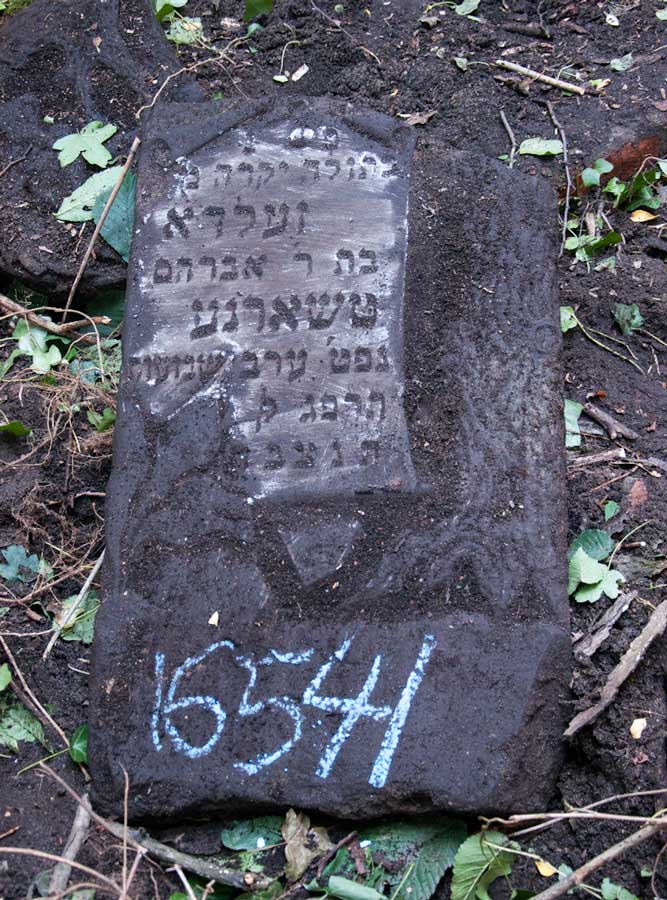 פט
בתולה יקרה מ
זעלדא
בת ר אברהם
טשארנע
נפט׳ ערב שבועות
תרפג ל
תנצבה
16541